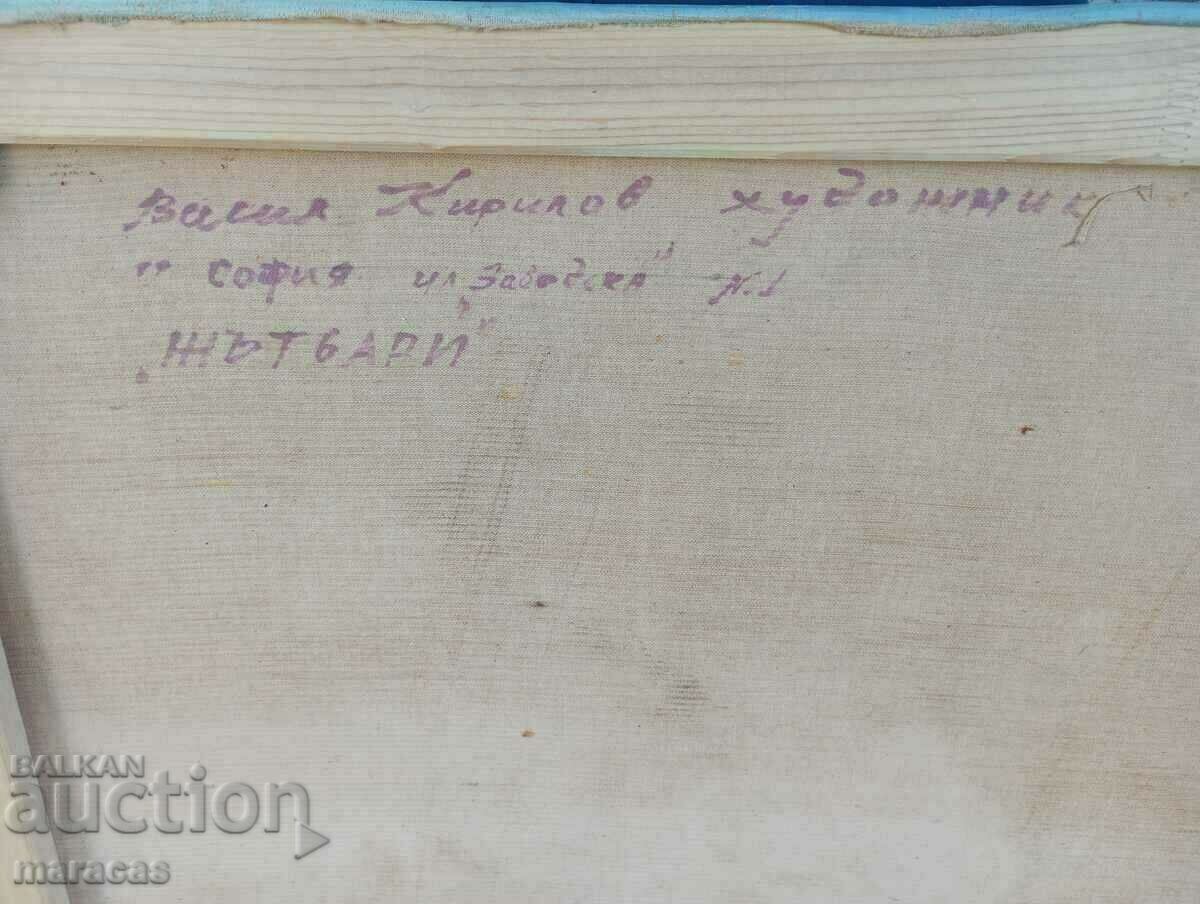 Васил Кирилов художник
" София ул "Заводска" №1
„ЖЪТВАРИ"
BALKAN
auction
maracas